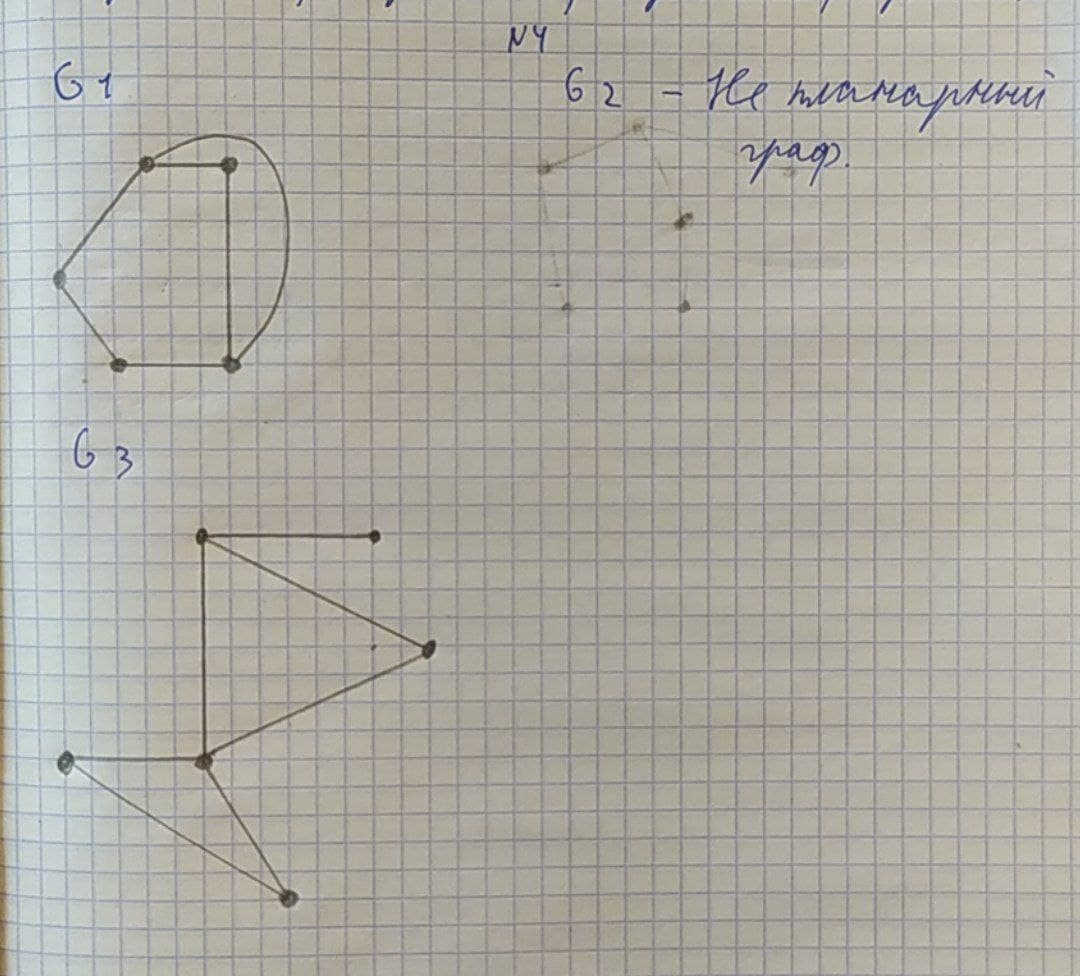 N4
G1
G2 - Не планарный
граф.
G3